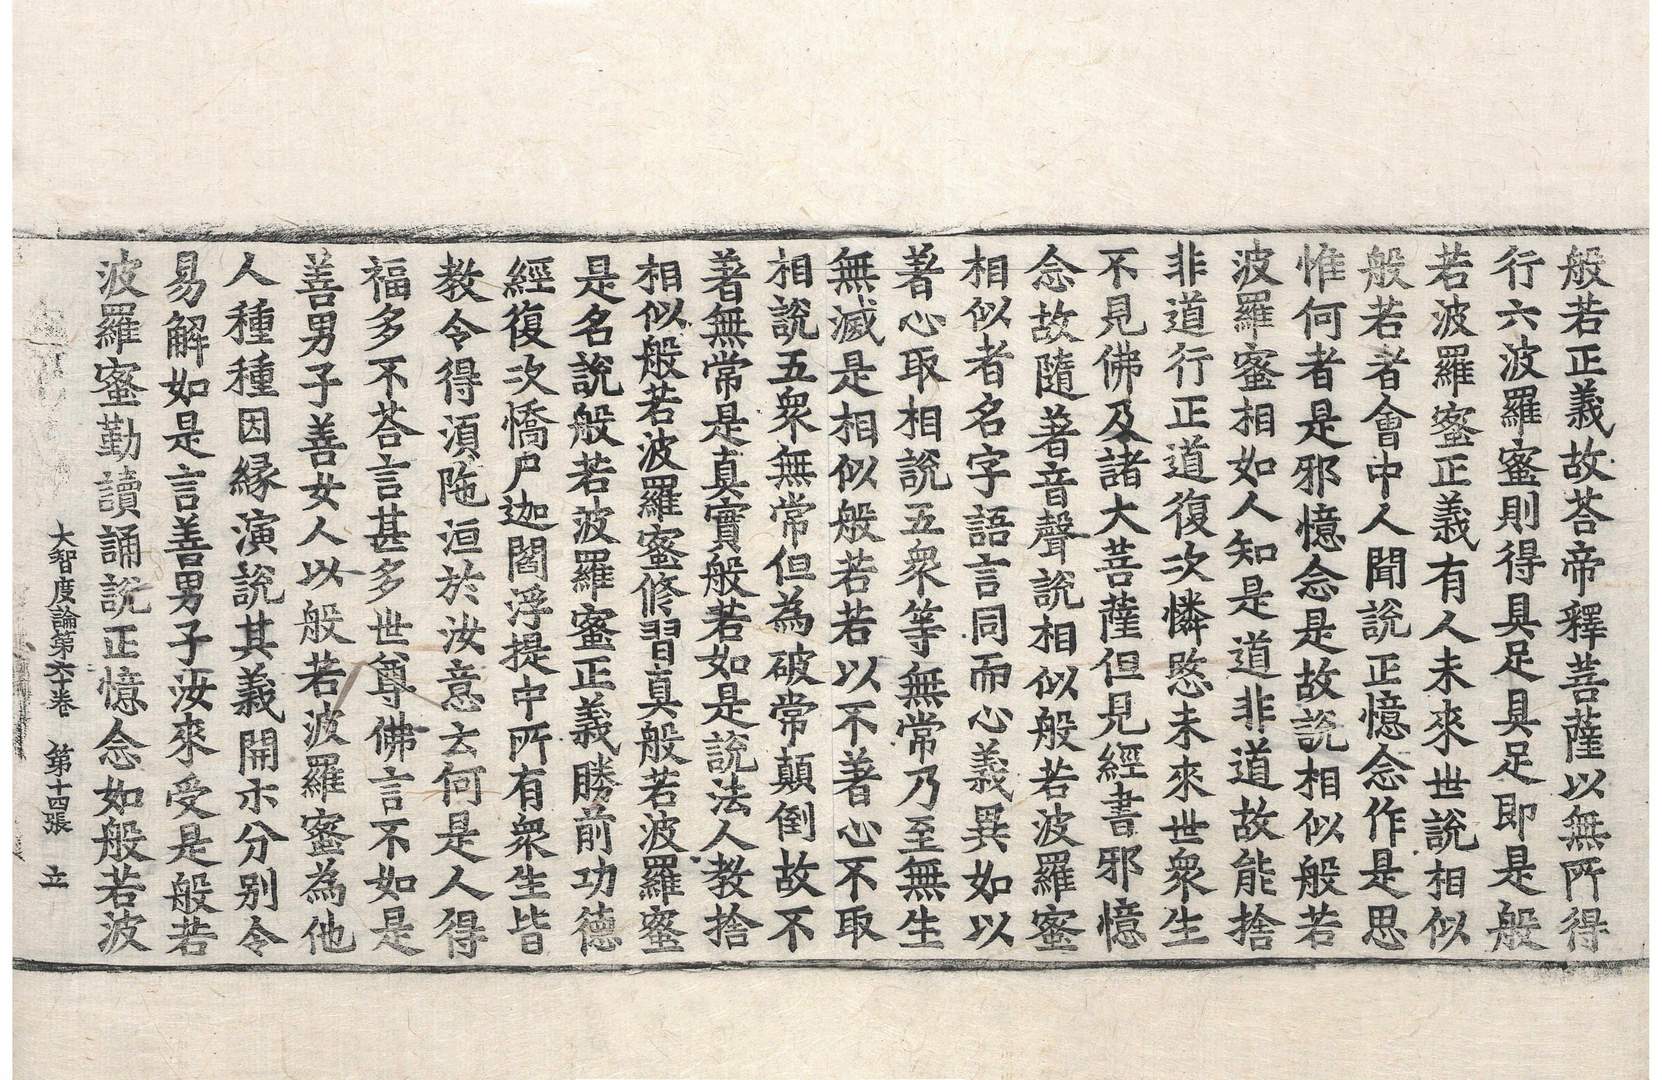 般若正義故荅帝釋菩薩以無所得
行六波羅蜜則得具足具足即是般
若波羅蜜正義有人未來世說相似
般若者會中人聞說正憶念作是思
惟何者是邪憶念是故說相似般若
波羅蜜相如人知是道非道故能捨
非道行正道復次憐愍未來世衆生
不見佛及諸大菩薩但見經書邪憶
念故隨著音聲說相似般若波羅蜜
相似者名字語言同而心義異如以
著心取相說五衆等無常乃至無生
無滅是相似般若若以不著心不取
相說五衆無常但為破常顛倒故不
著無常是真實般若如是說法人教捨
相似般若波羅蜜修習真般若波羅蜜
是名說般若波羅蜜正義勝前功德
經復次憍尸迦閻浮提中所有衆生皆
教令得湏陁洹於汝意云何是人得
福多不荅言甚多世尊佛言不如是
善男子善女人以般若波羅蜜為他
人種種因緣演說其義開示分別令
易解如是言善男子汝來受是般若
波羅蜜勤讀誦說正憶念如般若波
大智度論第六十卷 第十四張 立